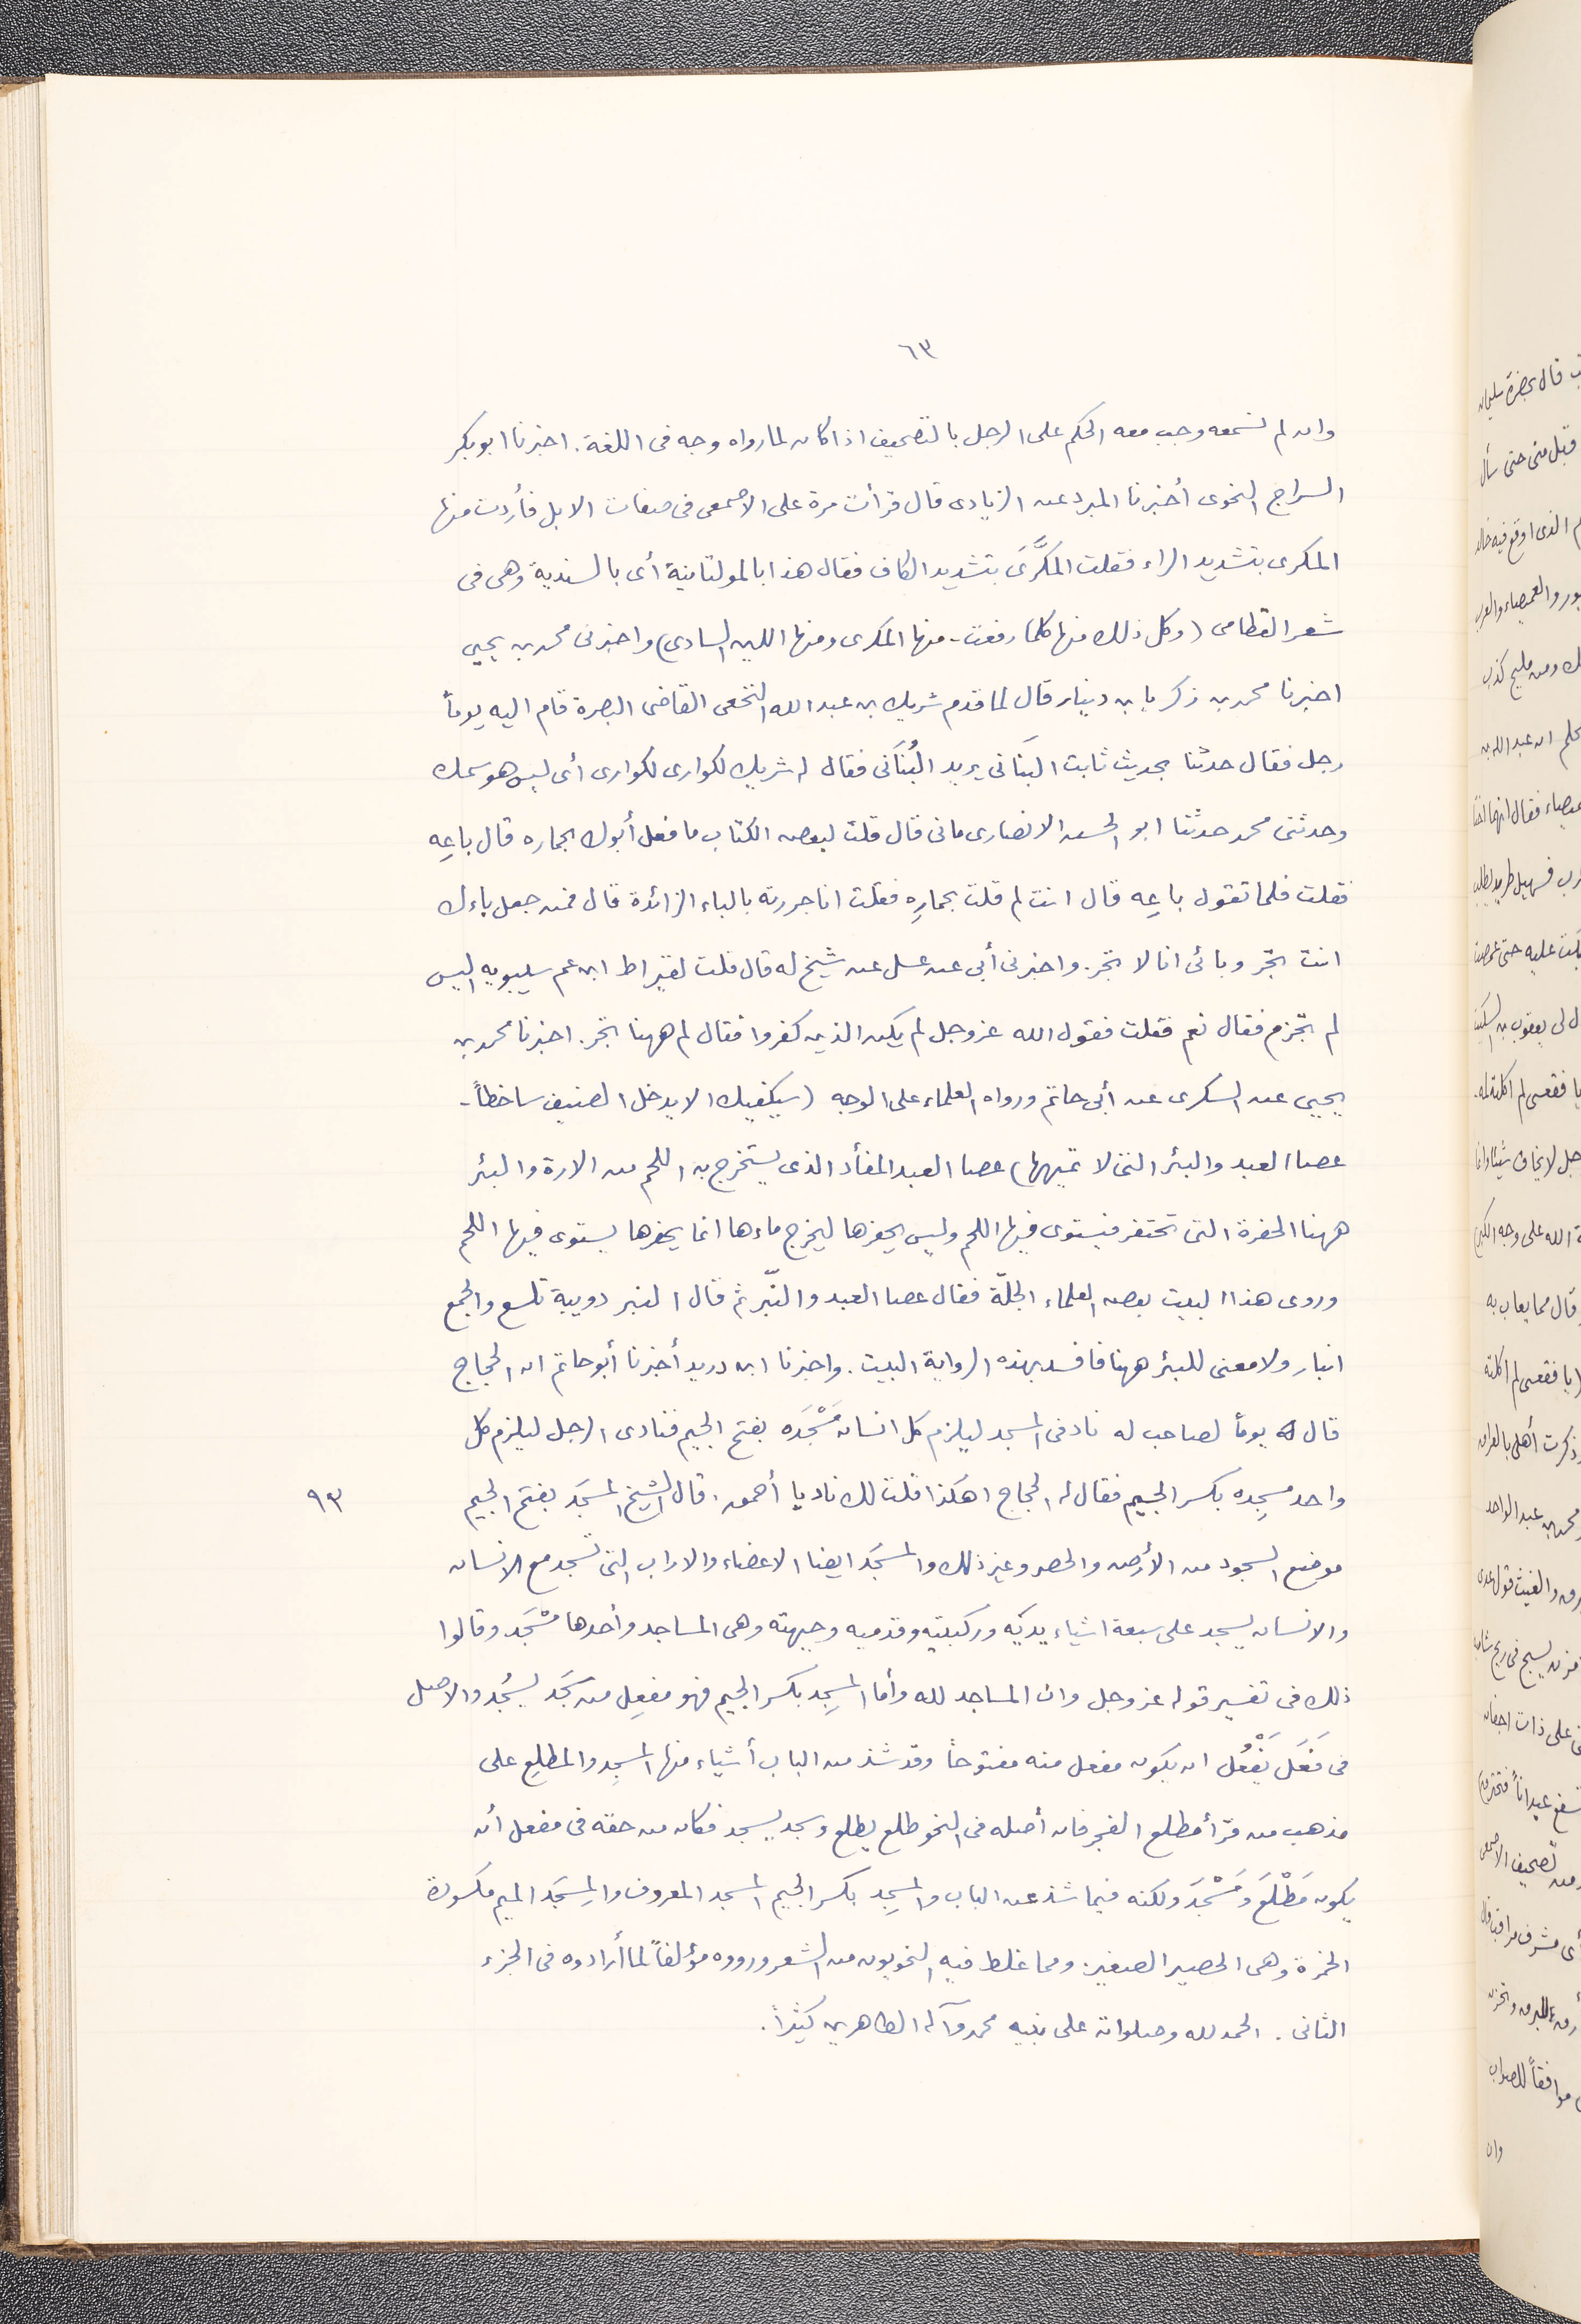 ٦٣
وان لم تسمعه وجب معه الحكم على الرجل بالتصحيف اذا كان لما رواه وجه فى اللغة. اخبرنا ابو بكر
السراج النحوى أخبرنا المبرد عن الزيادى قال قرأت مرة على الاصمعى فى صفات الابل فأردت منها
المكرى بتشديد الراء فقلت المكَّرىَ بتشديد الكاف فقال هذا بالمولتانية أى بالسندية وهى فى
شعر القطامى (وكل ذلك منها كلما رفعت - منها المكرى ومنها اللين السادى) واخبرنى محمد بن يحيى
اخبرنا محمد بن زكريا بن دينار قال لما قدم شريك بن عبد الله النخعى القاضى البصرة قام اليه يوماً
رجل فقال حدثنا بحديث ثابت البَنَانى يريد البُنَانى فقال له شريك لكوارى لكوارى أى ليس هو سمك
وحدثنى محمد حدثنا ابو الحسن الانصارى مانى قال قلت لبعض الكتاب ما فعل أبوك بحماره قال باعِه
فقلت فلما تقول باعِه قال انت لم قلت بحمارِه فقلت انا جررته بالباء الزائدة قال فمن جعل باءك
انت تجّر وبائى انا لا تجّر. واخبرنى أبى عن عسل عن شيخ له قال قلت لقيراط ابن عم سيبويه اليس
لم تجزم فقال نعم فقلت فقول الله عز وجل لم يكن الذين كفروا فقال لم ههنا تجر. اخبرنا محمد بن
يحيى عن السكرى عن أبى حاتم ورواه العلماء على الوجه (سيكفيك الا يدخل الضيف ساخطاً -
عصا العبد والبئر التى لا تميهها) عصا العبد المفأد الذى يستخرج به اللحم من الارة والبئر
ههنا الحفرة التى تحتفر فيستوى فيها اللحم وليس يحفرها ليخرج ماءها انما يحفرها ليستوى فيها اللحم
وروى هذا البيت بعض العلماء الجلّة فقال عصا العبد والنّبر ثم قال النبر دويبة تلسع والجمع
انبار ولا معنى للبئر ههنا فافسد بهذه الرواية البيت. واخبرنا ابن دريد أخبرنا أبو حاتم ان الحجاج
قال يوماً لصاحب له ناد فى المسجد ليلزم كل انسان مَسْجَده بفتح الجيم فنادى الرجل ليلزم كل
واحد مسجِده بكسر الجيم فقال له الحجاج اهكذا قلت لك ناد يا أحمق. قال الشيخ المسجَد بفتح الجيم ٩٣
موضع السجود من الأرض والحصر وغير ذلك والمسجَد ايضا الاعضاء والاراب التى تسجد مع الانسان
والانسان يسجد على سبعة اشياء يديَه وركبتيه وقدميه وجبهته وهى المساجد وأحدها مسْجَد وقالوا
ذلك فى تفسير قوله عز وجل وان المساجد لله وأما المسجِد بكسر الجيم فهو مفعِل من سَجَد يسجُد والاصل
فى فَعَل يَفْعُل ان يكون مفعل منه مفتوحا وقد شذ من الباب أشياء منها المسجِد والمطلِع على
مذهب من قرأ مطلع الفجر فان أصله فى النحو طلع يطلع وسجد يسجد فكان من حقه فى مفعل أن
يكون مَطْلَع ومَسْجَد ولكنه فيما شذ عن الباب والمسجِد بكسر الجيم المسجد المعروف والمِسجَد الميم مكسورة
الخمرة وهى الحصير الصغير. ومما غلط فيه النحويون من الشعر ورووه مؤلفاً لما أرادوه فى الجزء
الثانى. الحمد لله وصلواته على نبيه محمد وآله الطاهرين كثيراً.